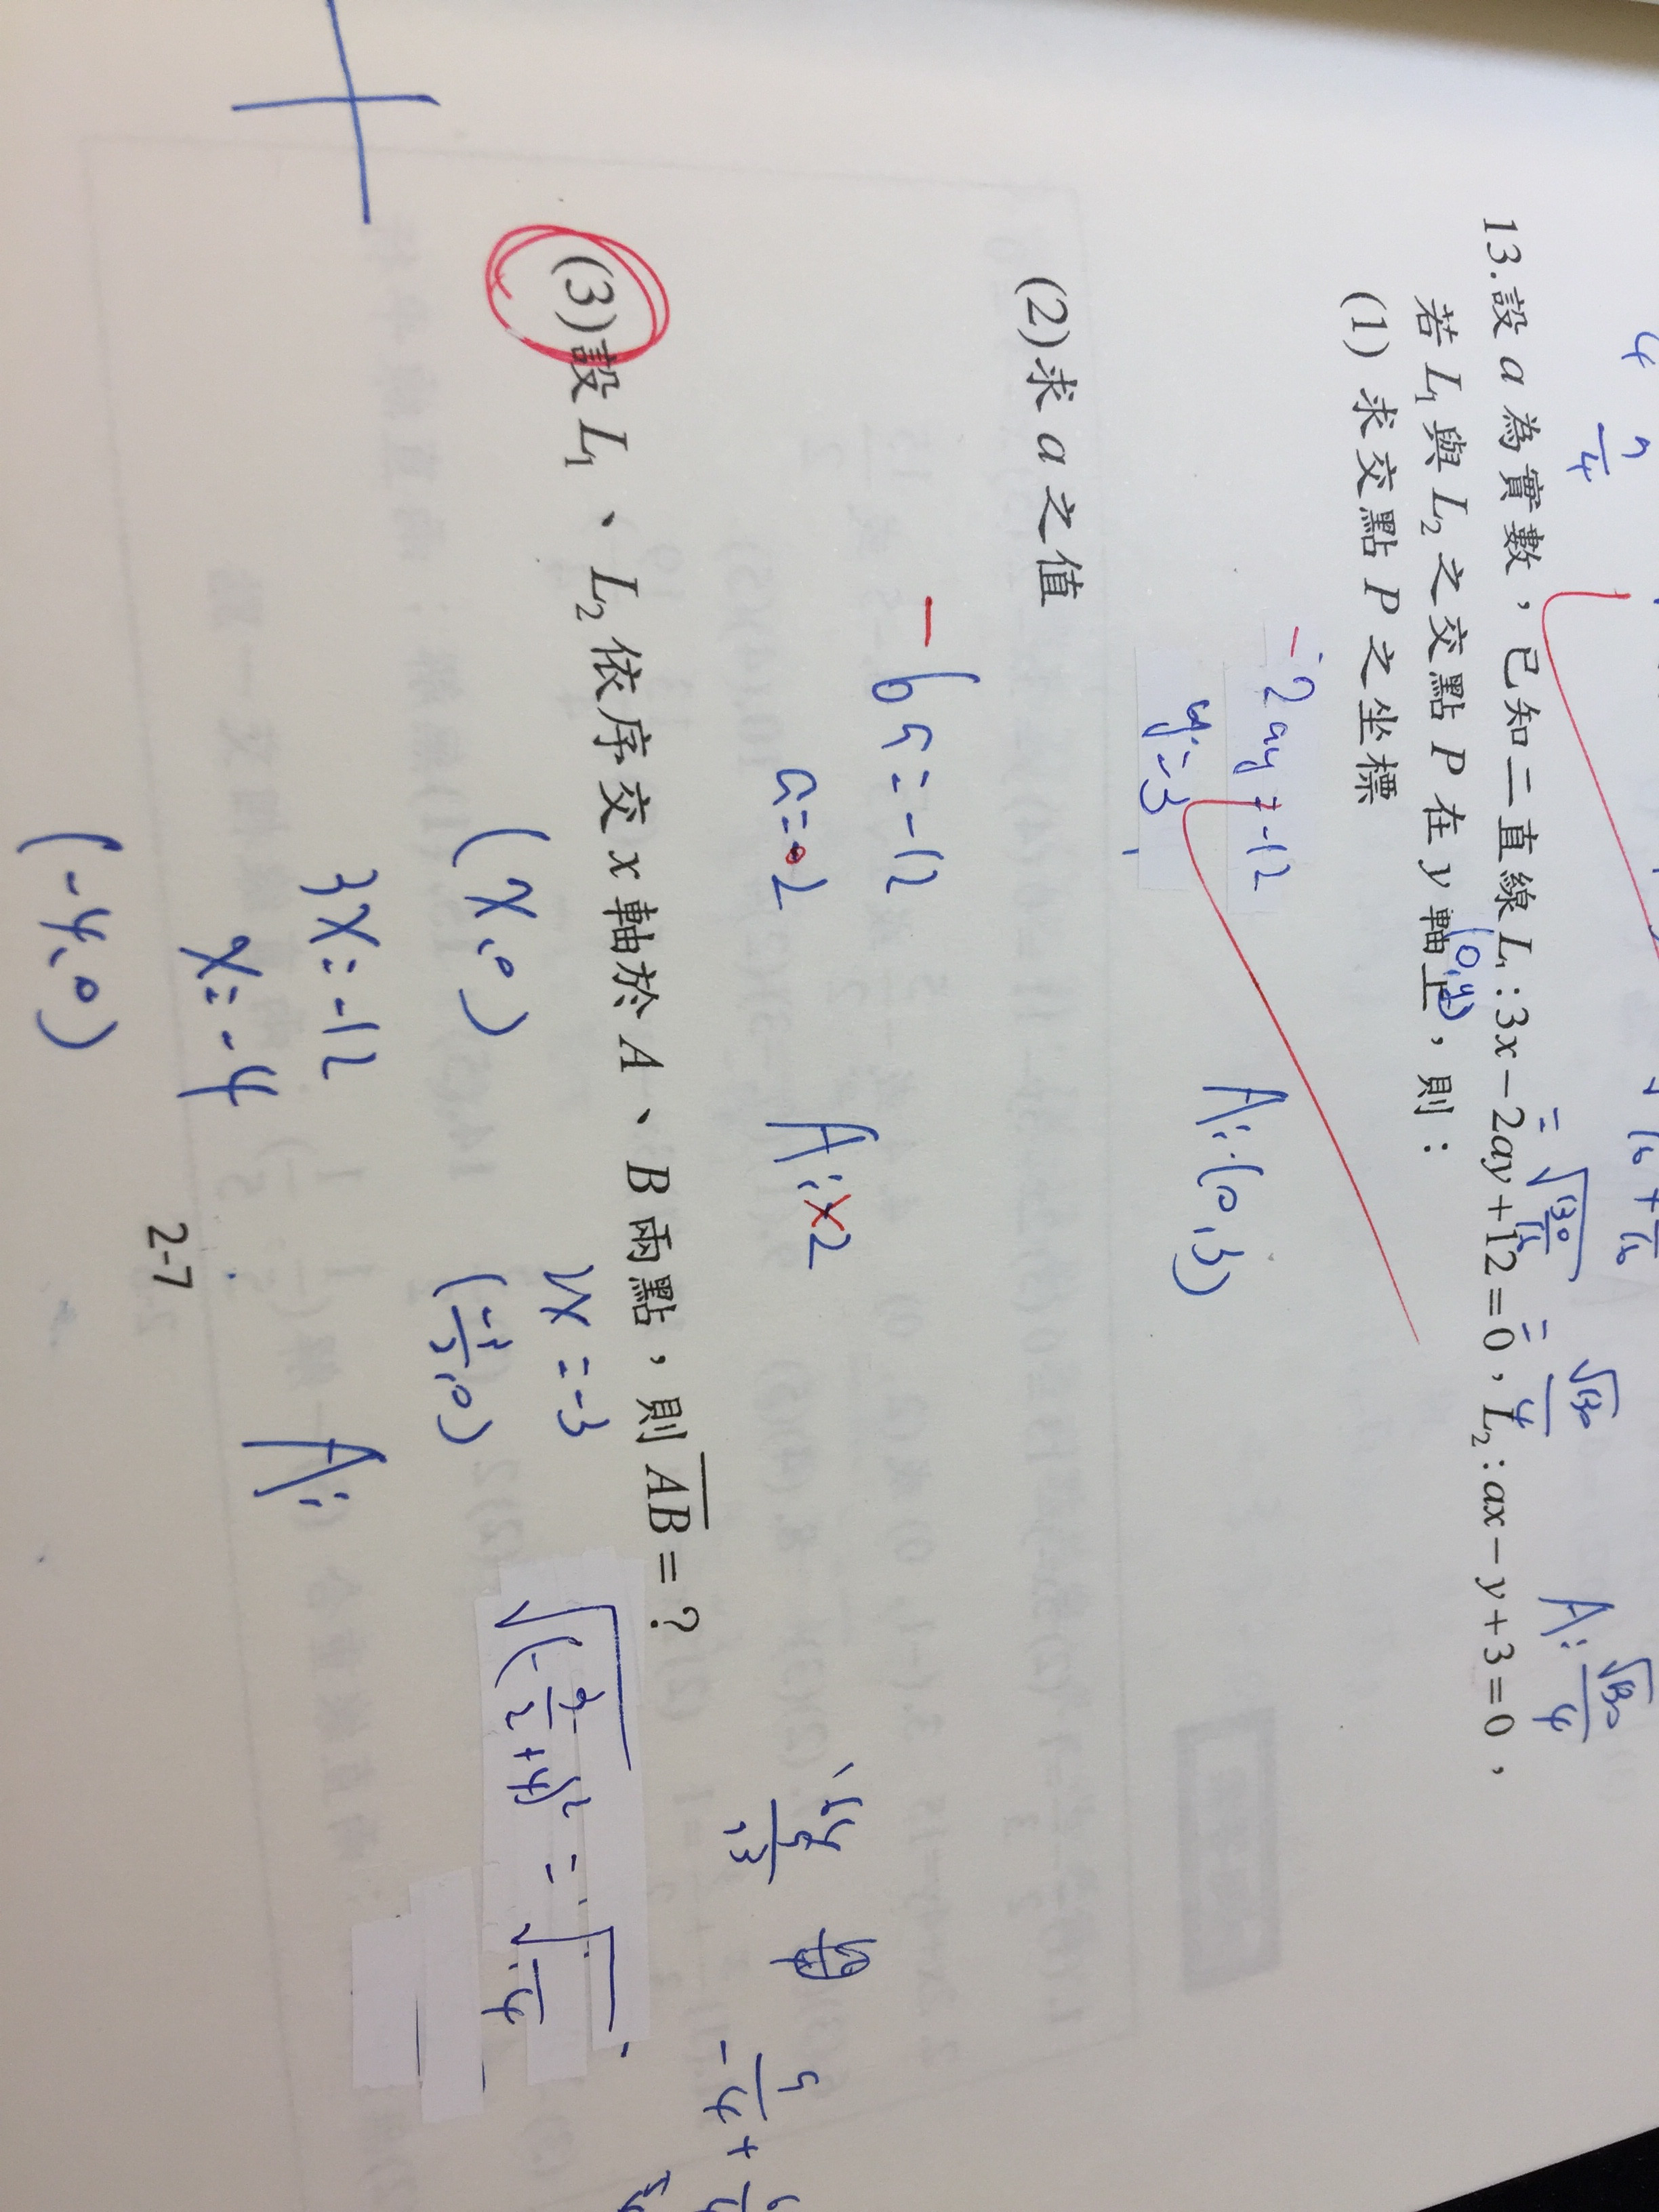 4
5/4
= √(130/16) = √130/4
A: √130/4
13.設 a 為實數，已知二直線 L₁:3x－2ay＋12＝0，L₂:ax－y＋3＝0，
若 L₁與 L₂之交點 P 在 y 軸上，則：
(0,y)
(1) 求交點 P 之坐標
-2ay=-12
y=3
A:(0,3)
(2)求 a 之值
-6a=-12
a=2
A:2
(3)設 L₁、L₂依序交 x 軸於 A、B 兩點，則 AB＝？
(x,0)
3x=-12
x=-4
(-4,0)
2x=-3
(-3/2,0)
√(-3/2+4)² =
A:
2-7